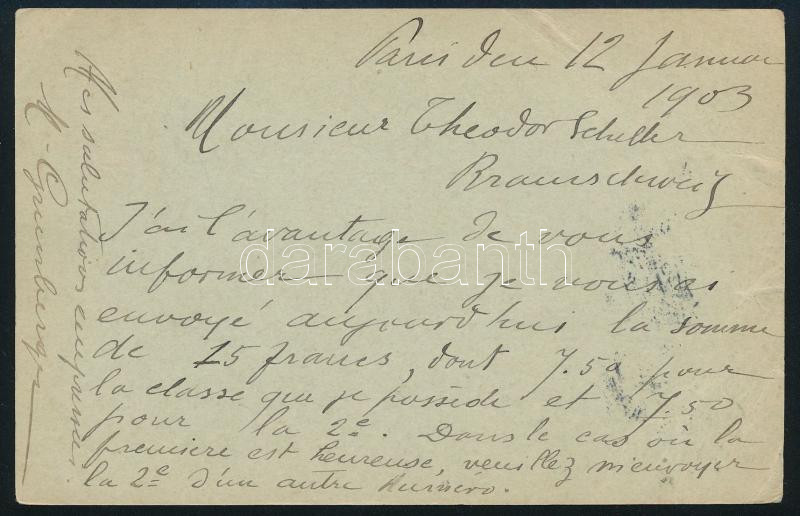 Paris den 12 Januar
1903
Monsieur Theodor Scheller
Braunschweig
J'ai l'avantage de vous
informer que je vous ai
envoyé aujourd'hui la somme
de 15 francs, dont 7.50 pour
la classe que je possède et 7.50
pour la 2e. Dans le cas où la
première est heureuse, veuillez m'envoyer
la 2e d'un autre Numéro.
Mes salutations empressées
M. Grunberger
darabanth